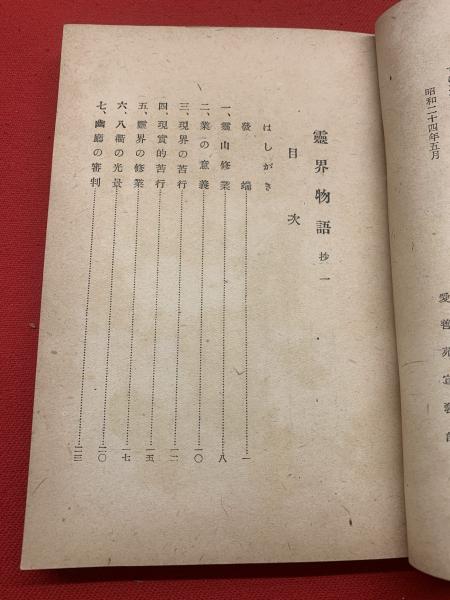 昭和二十四年五月
愛善苑宣教部
靈界物語 抄一
目次
はしがき
發端……一
一、靈山修業……八
二、業の意義……一〇
三、現界の苦行……一二
四、現實的苦行……一五
五、靈界の修業……一七
六、八衢の光景……二〇
七、幽廳の審判……二三